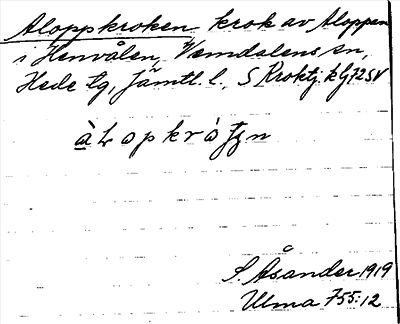 Aloppkroken krok av Aloppen
i Henvålen, Vemdalens sn,
Hede tg, Jämtl. l., S Kroktj. kG72SV
S. Åsander 1919
Ulma 755:12